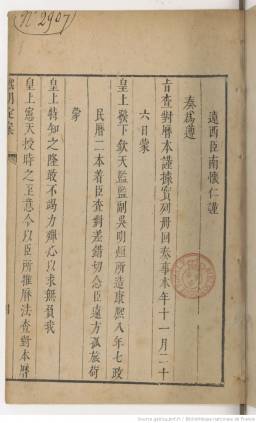 遠西臣南懷仁謹
奏爲遵
旨查對曆本謹據實列冊回奏事本年十一月二十
六日蒙
皇上發下欽天監監副吳明烜所造康熙八年七政
民曆二本着臣查對差錯切念臣遠方孤旅荷
蒙
皇上特知之隆敢不竭力殫心以求無負我
皇上憲天授時之至意今以臣所推曆法查對本曆
熙朝定案
Nº 2907
Source gallica.bnf.fr / Bibliothèque nationale de France